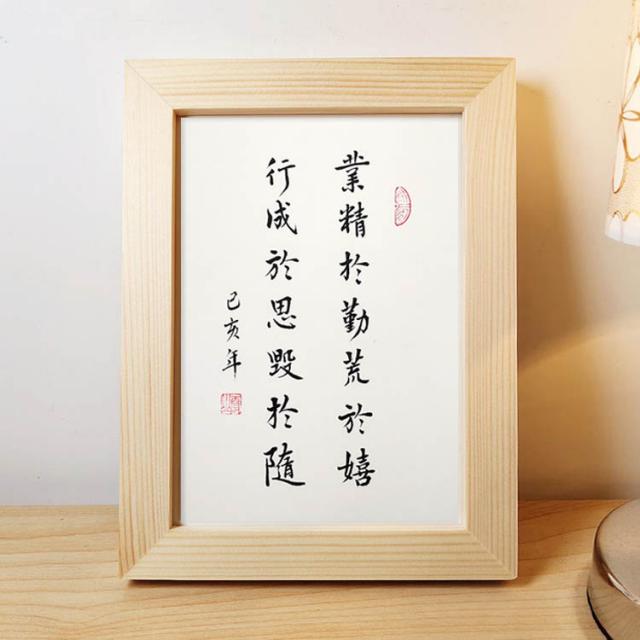 業精於勤荒於嬉
行成於思毀於隨
己亥年